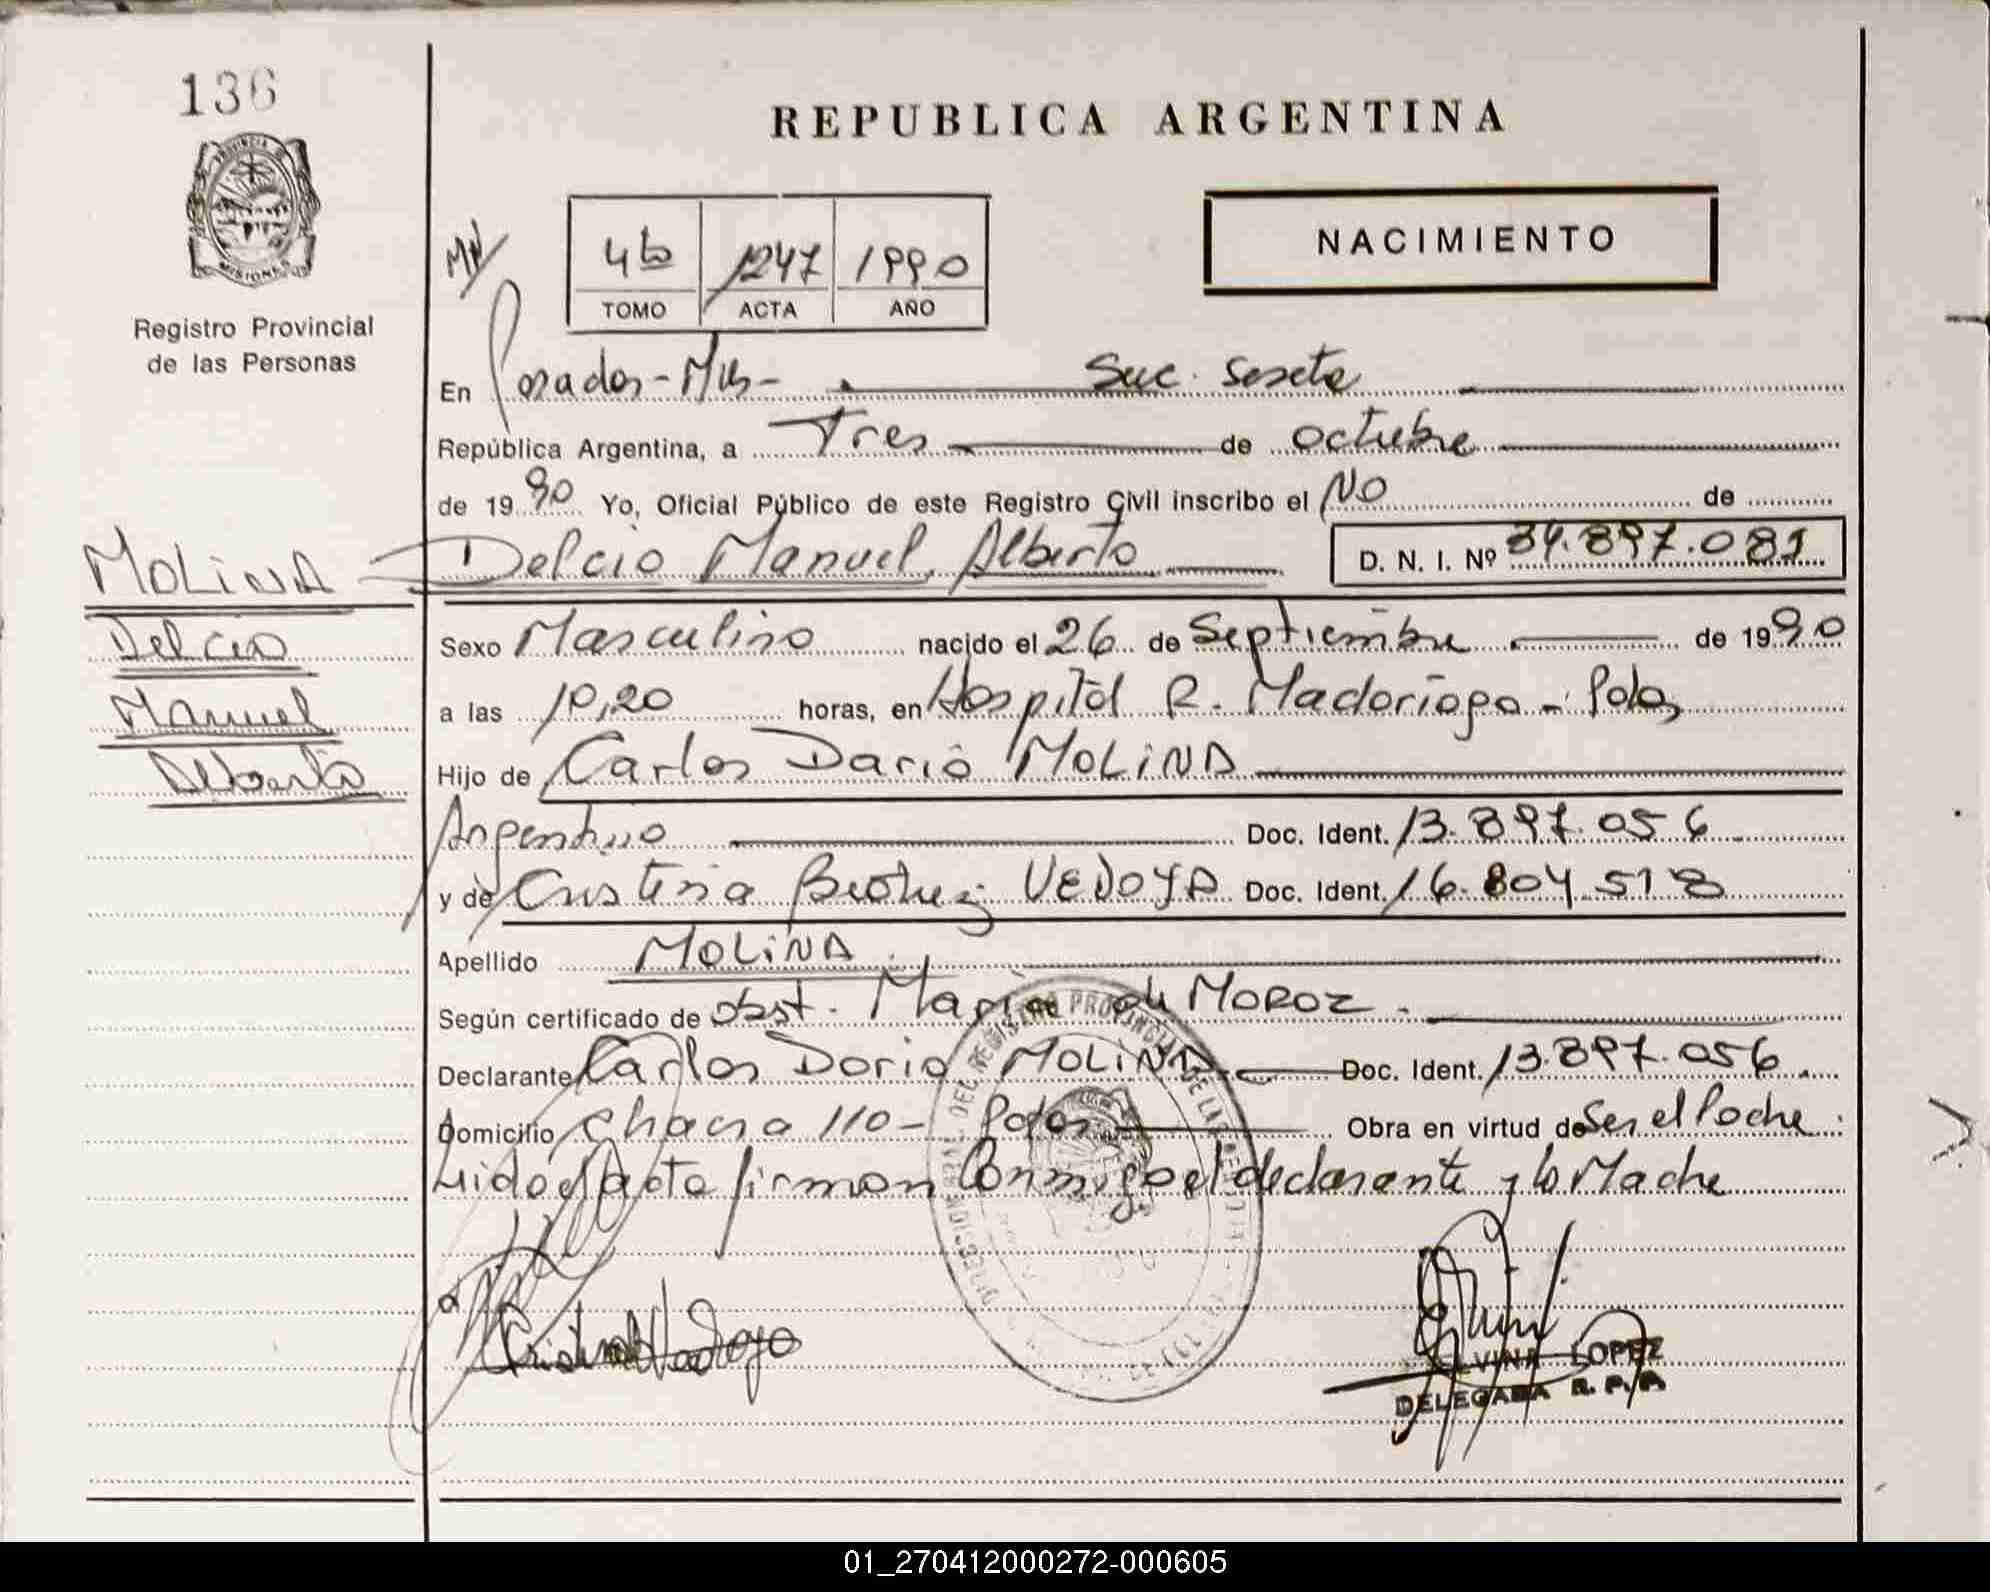 136
PROVINCIA DE
MISIONES
Registro Provincial
de las Personas
REPUBLICA ARGENTINA
NACIMIENTO
4to 1247 1990
TOMO ACTA AÑO
En Posadas - Mis - Suc. Sexta
República Argentina, a Tres de octubre
de 1990 Yo, Oficial Público de este Registro Civil inscribo el No de
MOLINA Delcio Manuel Alberto D. N. I. Nº 34.897.081
Delcio
Manuel
Alberto
Sexo Masculino nacido el 26 de Septiembre de 1990
a las 10,20 horas, en Hospital R. Madariaga - Pdas,
Hijo de Carlos Dario MOLINA
Argentino Doc. Ident. 13.897.056
y de Cristina Beatriz VEDOYA Doc. Ident. 16.804.518
Apellido MOLINA
Según certificado de obst. Maria de MOROZ.
Declarante Carlos Dario MOLINA Doc. Ident. 13.897.056
Domicilio Chacra 110 - Pdas Obra en virtud de Ser el Padre
Leido el acta firman Conmigo el declarante y la Madre
LOPEZ
DELEGADA R. P. P.
01_270412000272-000605